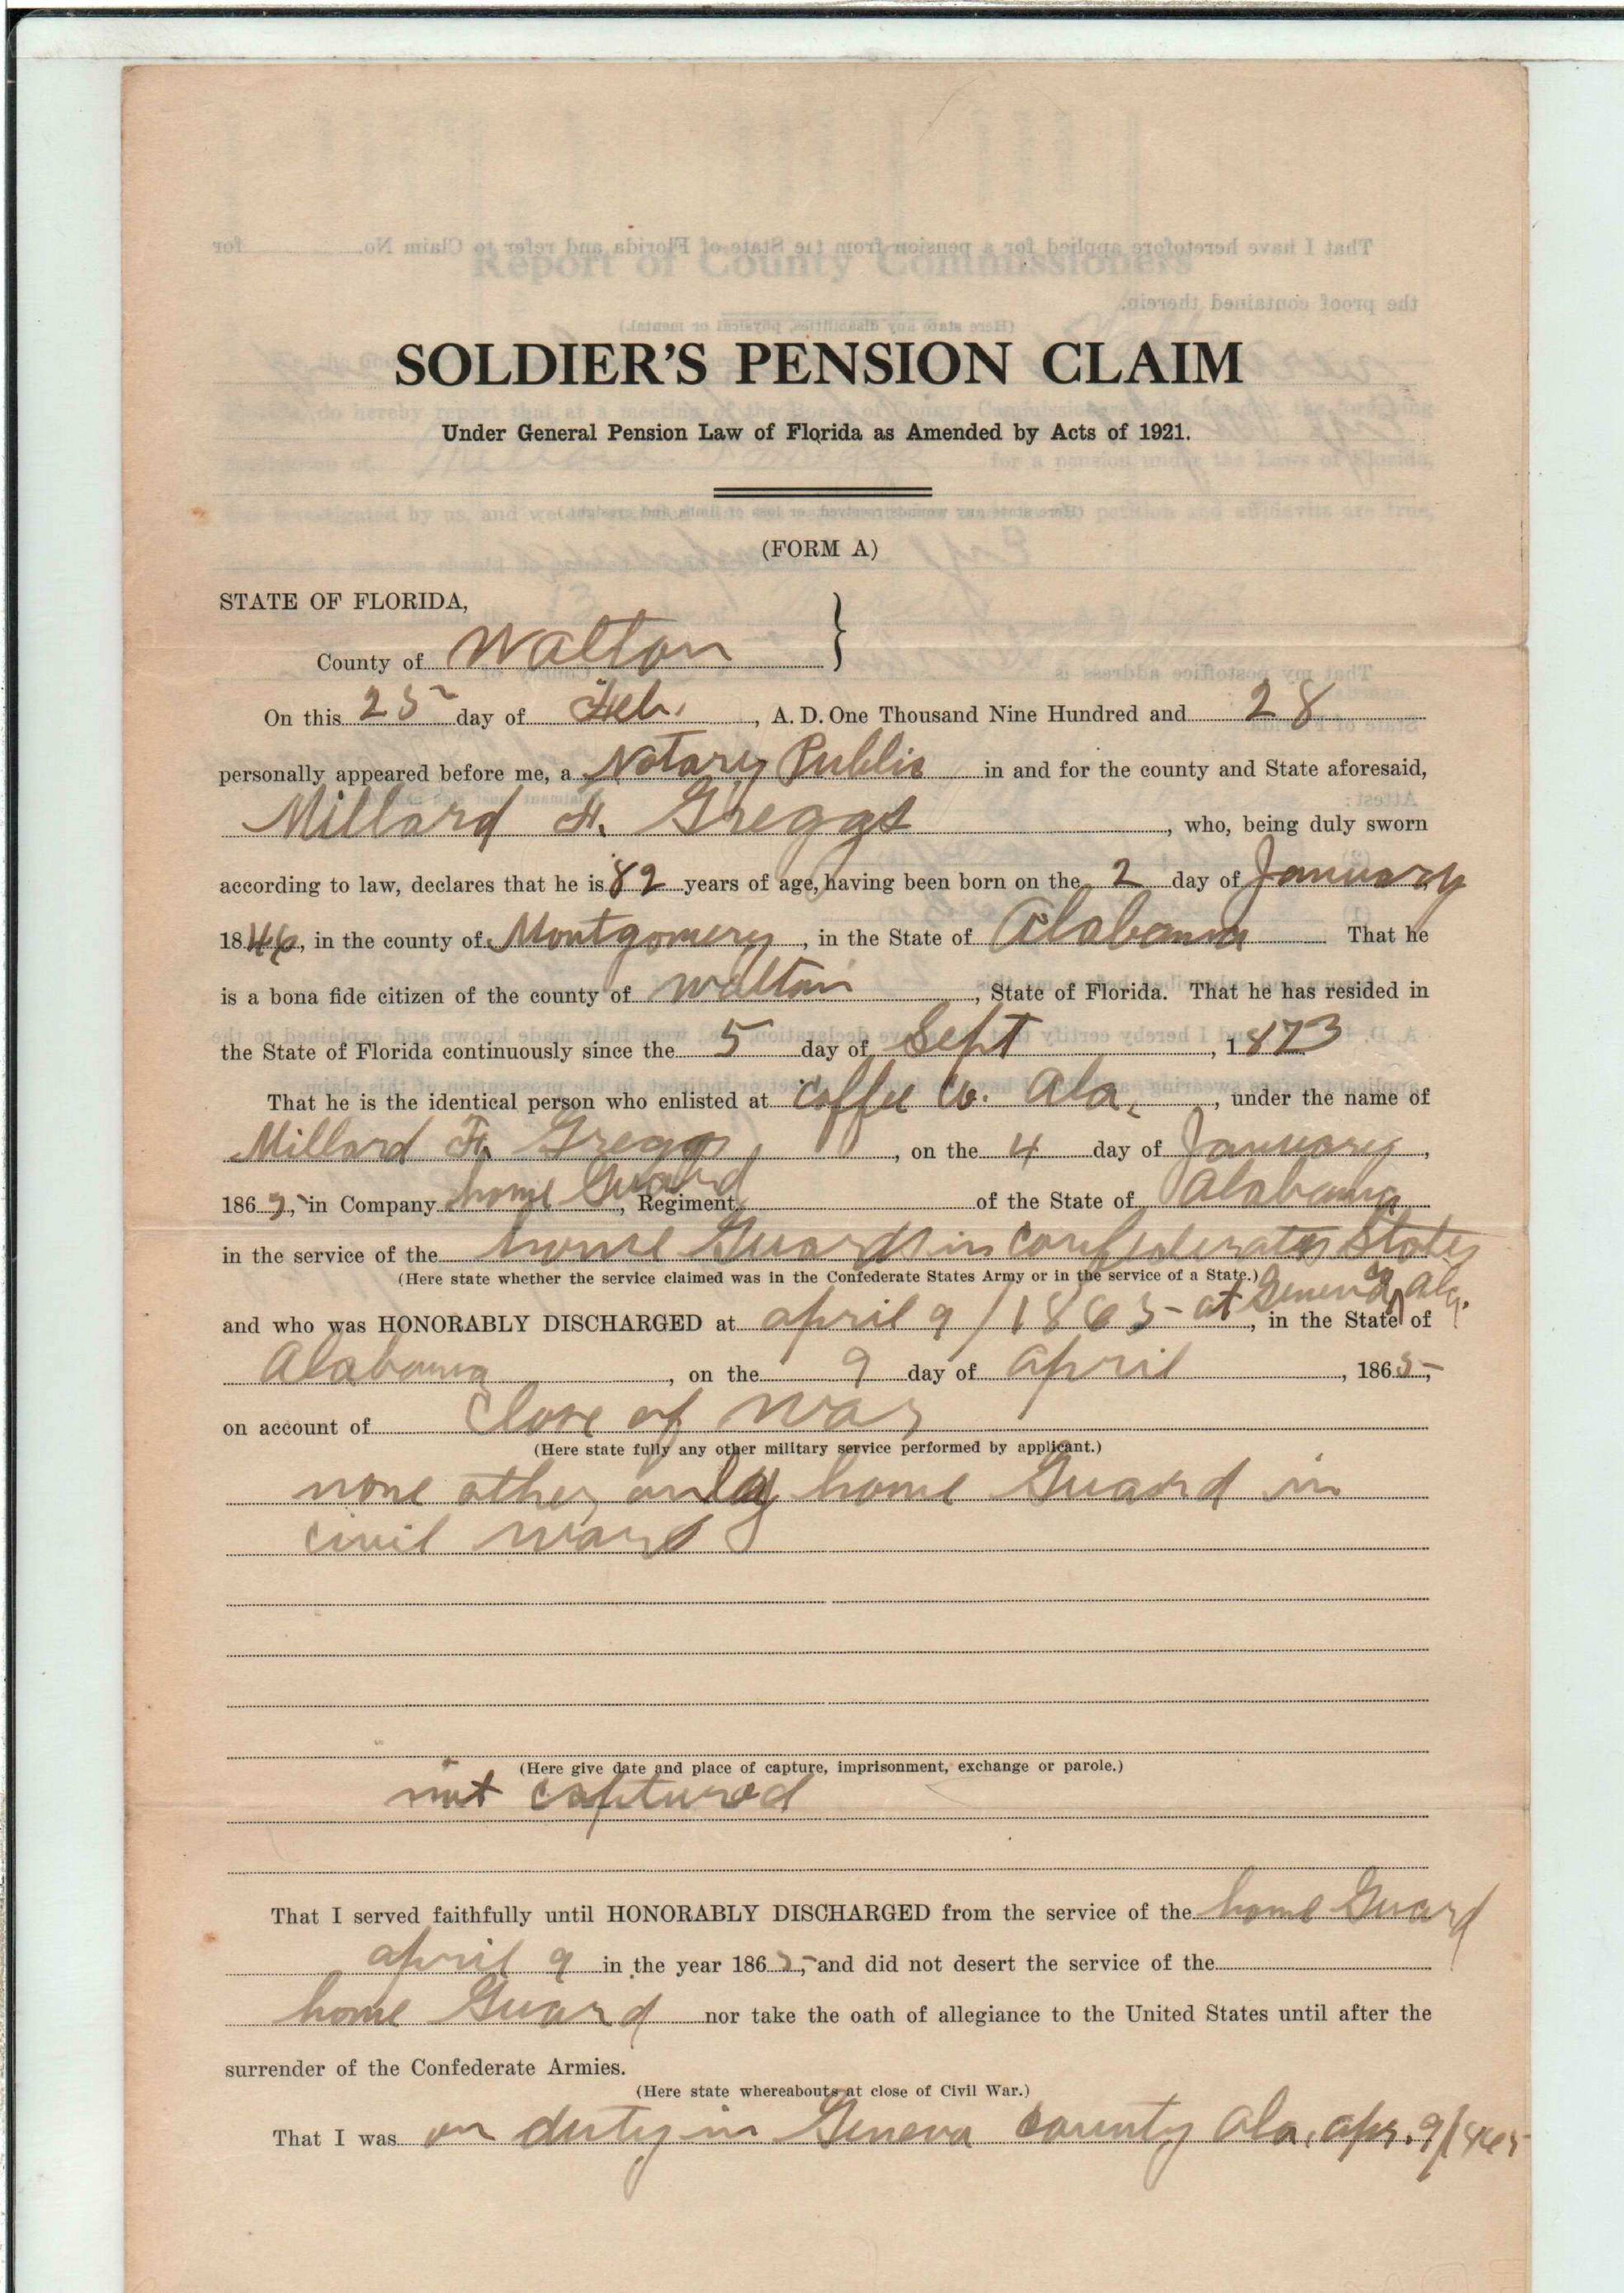 SOLDIER'S PENSION CLAIM
Under General Pension Law of Florida as Amended by Acts of 1921.
(FORM A)
STATE OF FLORIDA,
County of Walton }
On this 25 day of Feb. , A. D. One Thousand Nine Hundred and 28
personally appeared before me, a Notary Public in and for the county and State aforesaid,
Millard F. Greggs , who, being duly sworn
according to law, declares that he is 82 years of age, having been born on the 2 day of January
1846, in the county of Montgomery , in the State of Alabama That he
is a bona fide citizen of the county of Walton , State of Florida. That he has resided in
the State of Florida continuously since the 5 day of Sept , 1873
That he is the identical person who enlisted at Coffee Co. Ala. , under the name of
Millard F. Greggs , on the 4 day of January ,
186 , in Company home Guard , Regiment of the State of Alabama
in the service of the home Guards in Confederate States
(Here state whether the service claimed was in the Confederate States Army or in the service of a State.)
and who was HONORABLY DISCHARGED at april 9/1865 at Geneva Ala. , in the State of
Alabama , on the 9 day of april , 1865,
on account of Close of War
(Here state fully any other military service performed by applicant.)
none other only home Guard in
civil war
(Here give date and place of capture, imprisonment, exchange or parole.)
not captured
That I served faithfully until HONORABLY DISCHARGED from the service of the home Guard
april 9 in the year 1865, and did not desert the service of the
home Guard nor take the oath of allegiance to the United States until after the
surrender of the Confederate Armies.
(Here state whereabouts at close of Civil War.)
That I was on duty in Geneva county Ala. apr. 9/1865